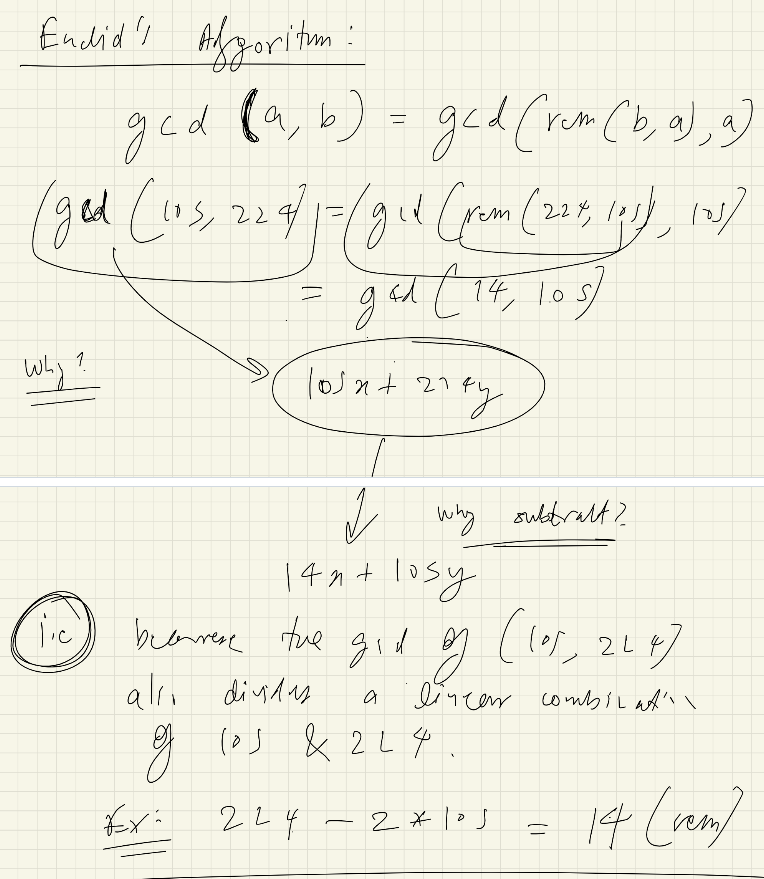 Euclid's Algoritm:
gcd (a, b) = gcd (rem(b, a), a)
(gcd (105, 224) = (gcd (rem (224, 105), 105)
= gcd (14, 105)
Why?
105x + 224y
why subtract?
14x + 105y
i.e
because the gcd of (105, 224)
also divides a linear combination
of 105 & 224.
Ex: 224 - 2 * 105 = 14 (rem)